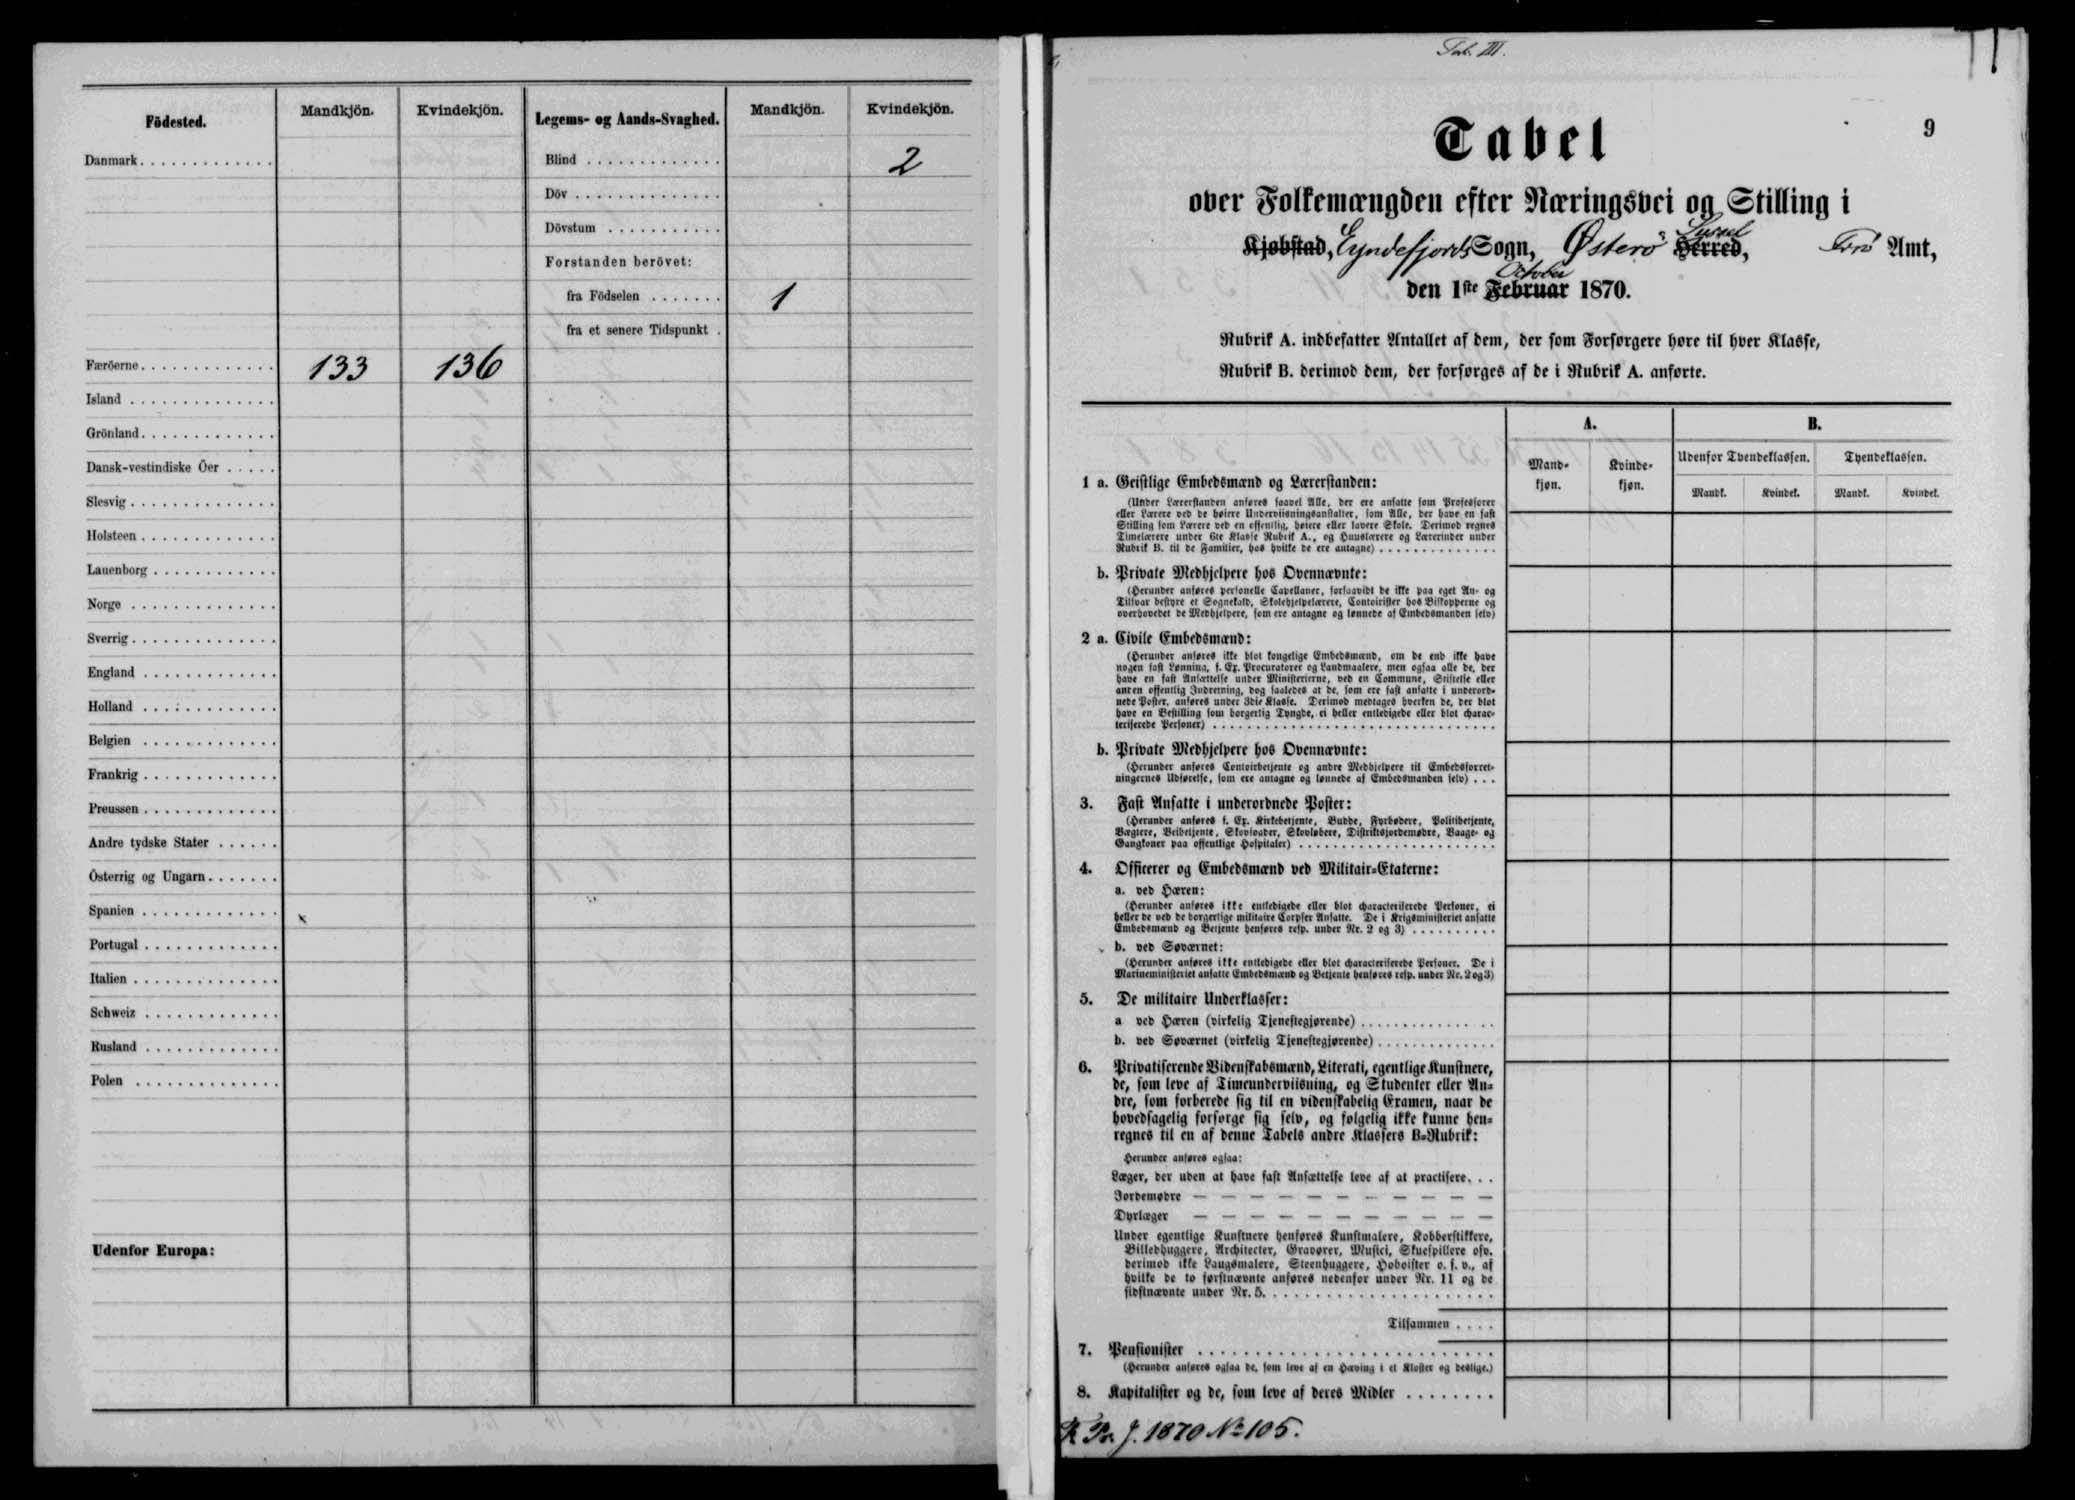 Födested.
Mandkjön.
Kvindekjön.
Legems- og Aands-Svaghed.
Mandkjön.
Kvindekjön.
Danmark
Blind 2
Döv
Dövstum
Forstanden berövet:
fra Födselen 1
fra et senere Tidspunkt
Færöerne 133 136
Island
Grönland
Dansk-vestindiske Öer
Slesvig
Holsteen
Lauenborg
Norge
Sverrig
England
Holland
Belgien
Frankrig
Preussen
Andre tydske Stater
Österrig og Ungarn
Spanien
Portugal
Italien
Schweiz
Rusland
Polen
Udenfor Europa:
Tab. III.
9
Tabel
over Folkemængden efter Næringsvei og Stilling i
Kjøbstad, Eyndefjords Sogn, Österö Syssel Herred, Færö Amt,
den 1ste October Februar 1870.
Rubrik A. indbefatter Antallet af dem, der som Forsørgere høre til hver Klasse,
Rubrik B. derimod dem, der forsørges af de i Rubrik A. anførte.
A.
B.
Mand-
kjøn.
Kvinde-
kjøn.
Udenfor Tyendeklassen.
Tyendeklassen.
Mandk.
Kvindek.
Mandk.
Kvindek.
1 a. Geistlige Embedsmænd og Lærerstanden:
(Under Lærerstanden anføres saavel Alle, der ere ansatte som Professorer
eller Lærere ved de høiere Underviisningsanstalter, som Alle, der have en fast
Stilling som Lærere ved en offentlig, høiere eller lavere Skole. Derimod regnes
Timelærere under 6te Klasse Rubrik A., og Huuslærere og Lærerinder under
Rubrik B. til de Familier, hos hvilke de ere antagne)
b. Private Medhjelpere hos Ovennævnte:
(Herunder anføres personelle Capellaner, forsaavidt de ikke paa eget An- og
Tilsvar bestyre et Sognekald, Skolehjelpelærere, Contoirister hos Biskopperne og
overhovedet de Medhjelpere, som ere antagne og lønnede af Embedsmanden selv)
2 a. Civile Embedsmænd:
(Herunder anføres ikke blot kongelige Embedsmænd, om de end ikke have
nogen fast Lønning, f. Ex. Procuratorer og Landmaalere, men ogsaa alle de, der
have en fast Ansættelse under Ministerierne, ved en Commune, Stiftelse eller
anden offentlig Indretning, dog saaledes at de, som ere fast ansatte i underord-
nede Poster, anføres under 3die Klasse. Derimod medtages hverken de, der blot
have en Bestilling som borgerlig Tyngde, ei heller entledigede eller blot charac-
teriserede Personer)
b. Private Medhjelpere hos Ovennævnte:
(Herunder anføres Contoirbetjente og andre Medhjelpere til Embedsforret-
ningernes Udførelse, som ere antagne og lønnede af Embedsmanden selv)
3. Fast Ansatte i underordnede Poster:
(Herunder anføres f. Ex. Kirkebetjente, Budde, Fyrbødere, Politibetjente,
Vægtere, Veibetjente, Skovfogder, Skovløbere, Distriktsjordemødre, Vaage- og
Gangkoner paa offentlige Hospitaler)
4. Officerer og Embedsmænd ved Militair-Etaterne:
a. ved Hæren:
(Herunder anføres ikke entledigede eller blot characteriserede Personer, ei
heller de ved de borgerlige militaire Corpser Ansatte. De i Krigsministeriet ansatte
Embedsmænd og Betjente henføres resp. under Nr. 2 og 3)
b. ved Søværnet:
(Herunder anføres ikke entledigede eller blot characteriserede Personer. De i
Marineministeriet ansatte Embedsmænd og Betjente henføres resp. under Nr. 2 og 3)
5. De militaire Underklasser:
a ved Hæren (virkelig Tjenestegjørende)
b. ved Søværnet (virkelig Tjenestegjørende)
6. Privatiserende Videnskabsmænd, Literati, egentlige Kunstnere,
de, som leve af Timeunderviisning, og Studenter eller An-
dre, som forberede sig til en videnskabelig Examen, naar de
hovedsagelig forsørge sig selv, og følgelig ikke kunne hen-
regnes til en af denne Tabels andre Klassers B-Rubrik:
Herunder anføres ogsaa:
Læger, der uden at have fast Ansættelse leve af at practisere.
Jordemødre — — — — — — — — — — —
Dyrlæger — — — — — — — — — — —
Under egentlige Kunstnere henføres Kunstmalere, Kobberstikkere,
Billedhuggere, Architecter, Gravører, Musici, Skuespillere osv.
derimod ikke Laugsmalere, Steenhuggere, Hoboister o. s. v., af
hvilke de to førstnævnte anføres nedenfor under Nr. 11 og de
sidstnævnte under Nr. 5.
Tilsammen
7. Pensionister
(Herunder anføres ogsaa de, som leve af en Hæving i et Kloster og deslige.)
8. Kapitalister og de, som leve af deres Midler
J. 1870 No 105.